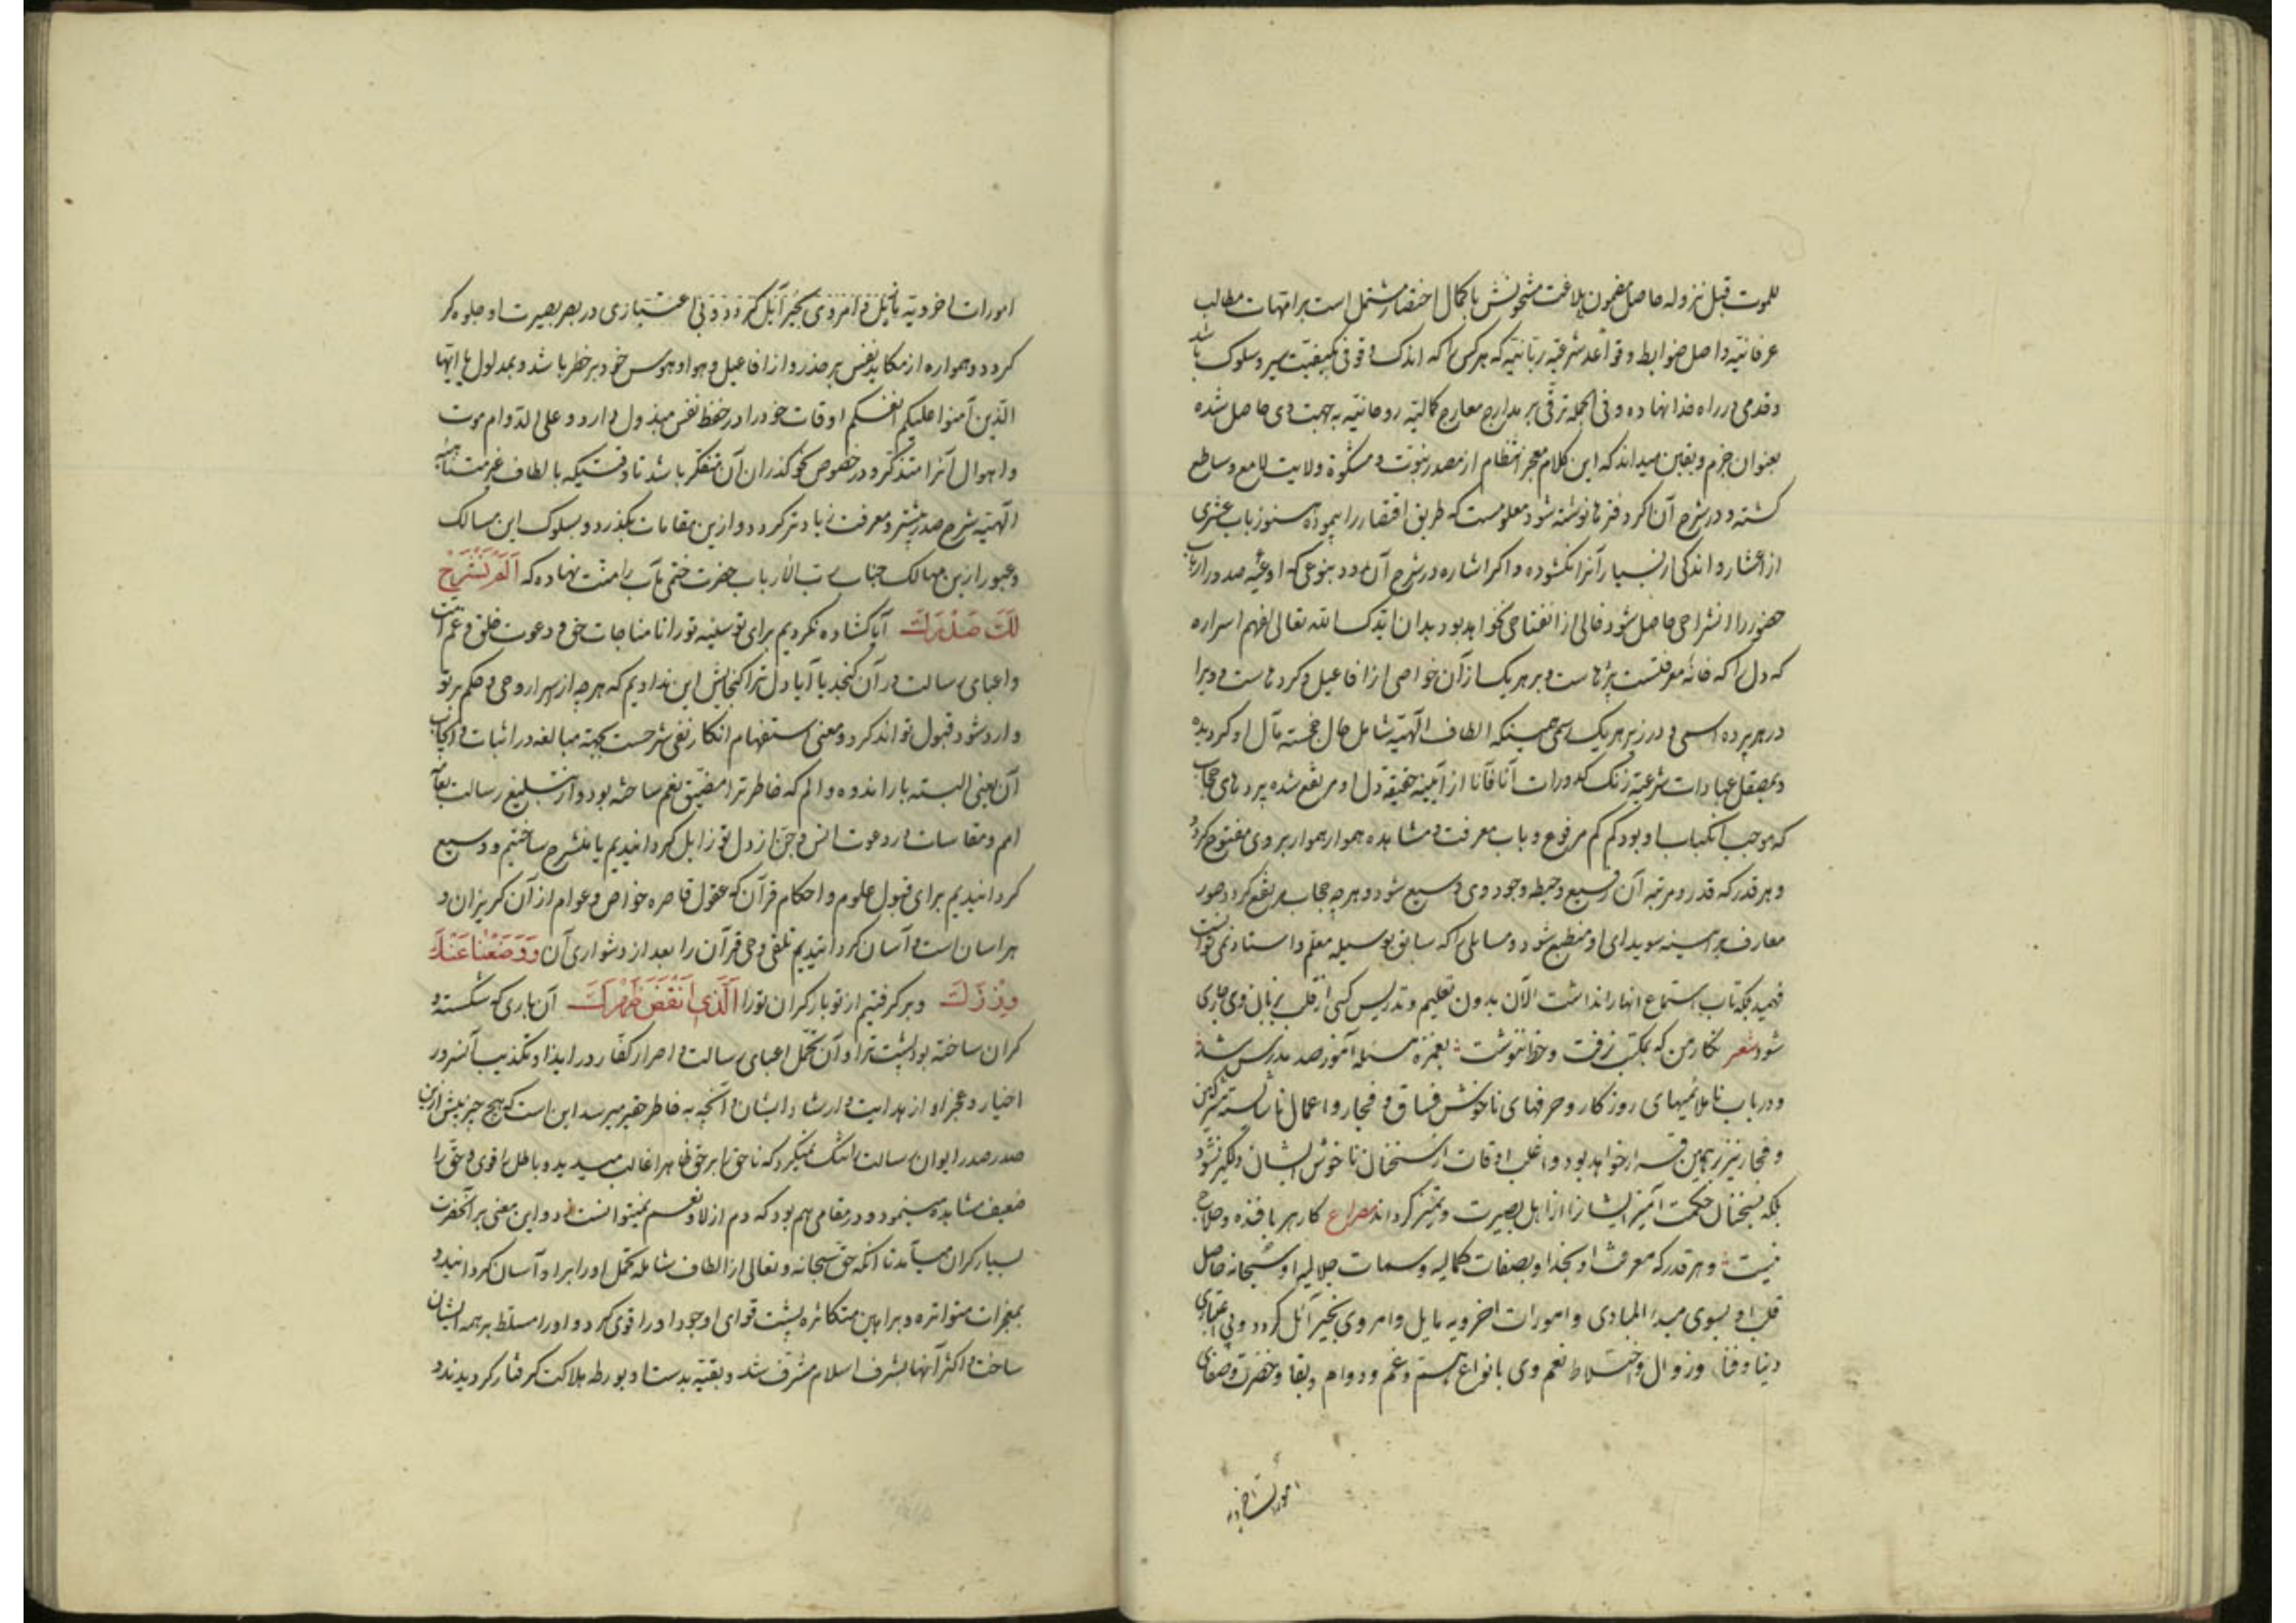 للموت قبل نزوله حاصل مضمون بلاغت مشحونش با کمال اختصار مشتمل است بر امهات مطالب
عرفانیه و اصل ضوابط و قواعد شرعیه ربانیه که هر کس را که اندک وقوفی بکیفیت سیر و سلوک باشد
و قدمی در راه خدا نهاده و فی الجمله ترقی بر مدارج معارج کمالیه روحانیه به جهت وی حاصل شده
بعنوان جزم و یقین میداند که این کلام معجز انتظام از مصدر نبوت و مشکوة ولایت لامع و ساطع
کشته و در شرح آن اکر دفترها نوشته شود معلومست که طریق اقتصار را پیموده هنوز باب عشری
از اعشار و اندکی از بسیار آنرا نکشوده و اکر اشاره در شرح آن رود بنوعی که اوعیه صدور ارباب
حضور را انشراحی حاصل شود خالی از انفتاحی نخواهد بود بدان ایدک الله تعالی لفهم اسراره
که دل را که خانه معرفتست پردهاست و بر هر یک از آن خواصی از افاعیل و کردهاست و ویرا
در هر پرده اسمی و در زیر هر یک رسمی همینکه الطاف الهیه شامل حال خجسته مآل او کردیده
و بمصقل عبادات شرعیه زنک کدورات آنا فآنا از آیینه حقیقه دل او مرتفع شده پردهای حجاب
که موجب انکباب او بود کم کم مرفوع و باب معرفت و مشاهده هموار هموار بروی مفتوح کردد
و هر قدر که قدر و مرتبه آن وسیع و حیطه وجود وی وسیع شود و هر چه حجاب مرتفع کردد صور
معارف بر آیینه سویدای او منطبع شود و مسایلی را که سابق بوسیله معلم و استاد نمی توانست
فهمید بلکه تاب استماع انها را نداشت الآن بدون تعلیم و تدریس کسی از قلب بزبان وی جاری
شود شعر نکار من که بمکتب نرفت و خط ننوشت بغمزه مسئله آموز صد مدرس شد
و در باب ناملائمیهای روزکار و حرفهای ناخوش فساق و فجار و اعمال ناشایسته مشرکین
و فجار نیز بهمین قسم خواهد بود و اغلب اوقات از سخنان ناخوش ایشان دلکیر نشود
بلکه بسخنان حکمت آمیز ایشانرا از اهل بصیرت و تمیز کرداند مصراع کار هر بافنده و حلاج
نیست و هر قدر که معرفت او بخدا و بصفات کمالیه و سمات جلالیه او سبحانه حاصل
قلب او بسوی مبدء المبادی و امورات اخرویه مایل و امر وی بخیر آئل کردد و بی اعتباری
دنیا و فنا و زوال و اختلاط نعم وی بانواع ستم و غم و دوام و بقا و خضرت و صفای
امورات اخرویه
امورات اخرویه مایل و امر وی بخیر آئل کردد و بی اعتباری در بصر بصیرت او جلوه کر
کردد و همواره از مکاید نفس بر حذر و از افاعیل و هوا و هوس خود بر خطر باشد و بمدلول یا ایها
الذین آمنوا علیکم انفسکم اوقات خود را در حفظ نفس مبذول دارد و علی الدوام موت
و اهوال آنرا متذکر و در خصوص نحو کذران آن متفکر باشد تا وقتیکه بالطاف غیر متناهیه
الهیه شرح صدر بیشتر و معرفت زیادتر کردد و از این مقامات بکذرد و بسلوک این مسالک
و عبور از این مهالک جناب رب الارباب حضرت ختمی مآب را منت نهاده که اَلَمْ نَشْرَحْ
لَكَ صَدْرَكَ آیا کشاده نکردیم برای تو سینه تو را تا مناجات حق و دعوت خلق و غم امت
و اعبای رسالت در آن کنجد یا آیا دل ترا کنجایش این ندادیم که هر چه از اسرار وحی و حکم بر تو
وارد شود قبول تواند کرد و معنی استفهام انکار نفی شرحست بجهته مبالغه در اثبات و ایجاب
آن یعنی البته بار اندوه و الم که خاطر ترا مضیق بغم ساخته بود و از تبلیغ رسالت بعامه
امم و مقاسات در دعوت انس و جن از دل تو زایل کردانیدیم یا منشرح ساختیم و وسیع
کردانیدیم برای قبول علوم و احکام قرآن که عقول قاصره خواص و عوام از آن کریزان و
هراسان است و آسان کردانیدیم تلقی وحی قرآن را بعد از دشواری آن وَوَضَعْنَا عَنْكَ
وِزْرَكَ و برکرفتیم از تو بار کران تو را اَلَّذِي اَنْقَضَ ظَهْرَكَ آن باری که شکسته و
کران ساخته بود پشت ترا و آن تحمل اعبای رسالت و اصرار کفار در ایذا و تکذیب آنسرور
اخیار و عجز او از هدایت و ارشاد ایشان و آنچه به خاطر حقیر میرسد این است که هیچ چیز بیش ازین
صدر صدر ایوان رسالت را تنک نمیکرد که ناحق را بر حق ظاهرا غالب میدید و باطل را قوی و حق را
ضعیف مشاهده مینمود و در مقامی هم بود که دم از لا و نعم نمیتوانست زد و این معنی بر آنحضرت
بسیار کران میآمد تا آنکه حق سبحانه و تعالی از الطاف شامله تحمل او را بر او آسان کردانید و
بمعجزات متواتره و براهین متکاثره پشت قوای وجود او را قوی کرد و او را مسلط بر همه ایشان
ساخت و اکثر آنها بشرف اسلام مشرف شد و بقیه بدست او بورطه هلاکت کرفتار کردیدند و